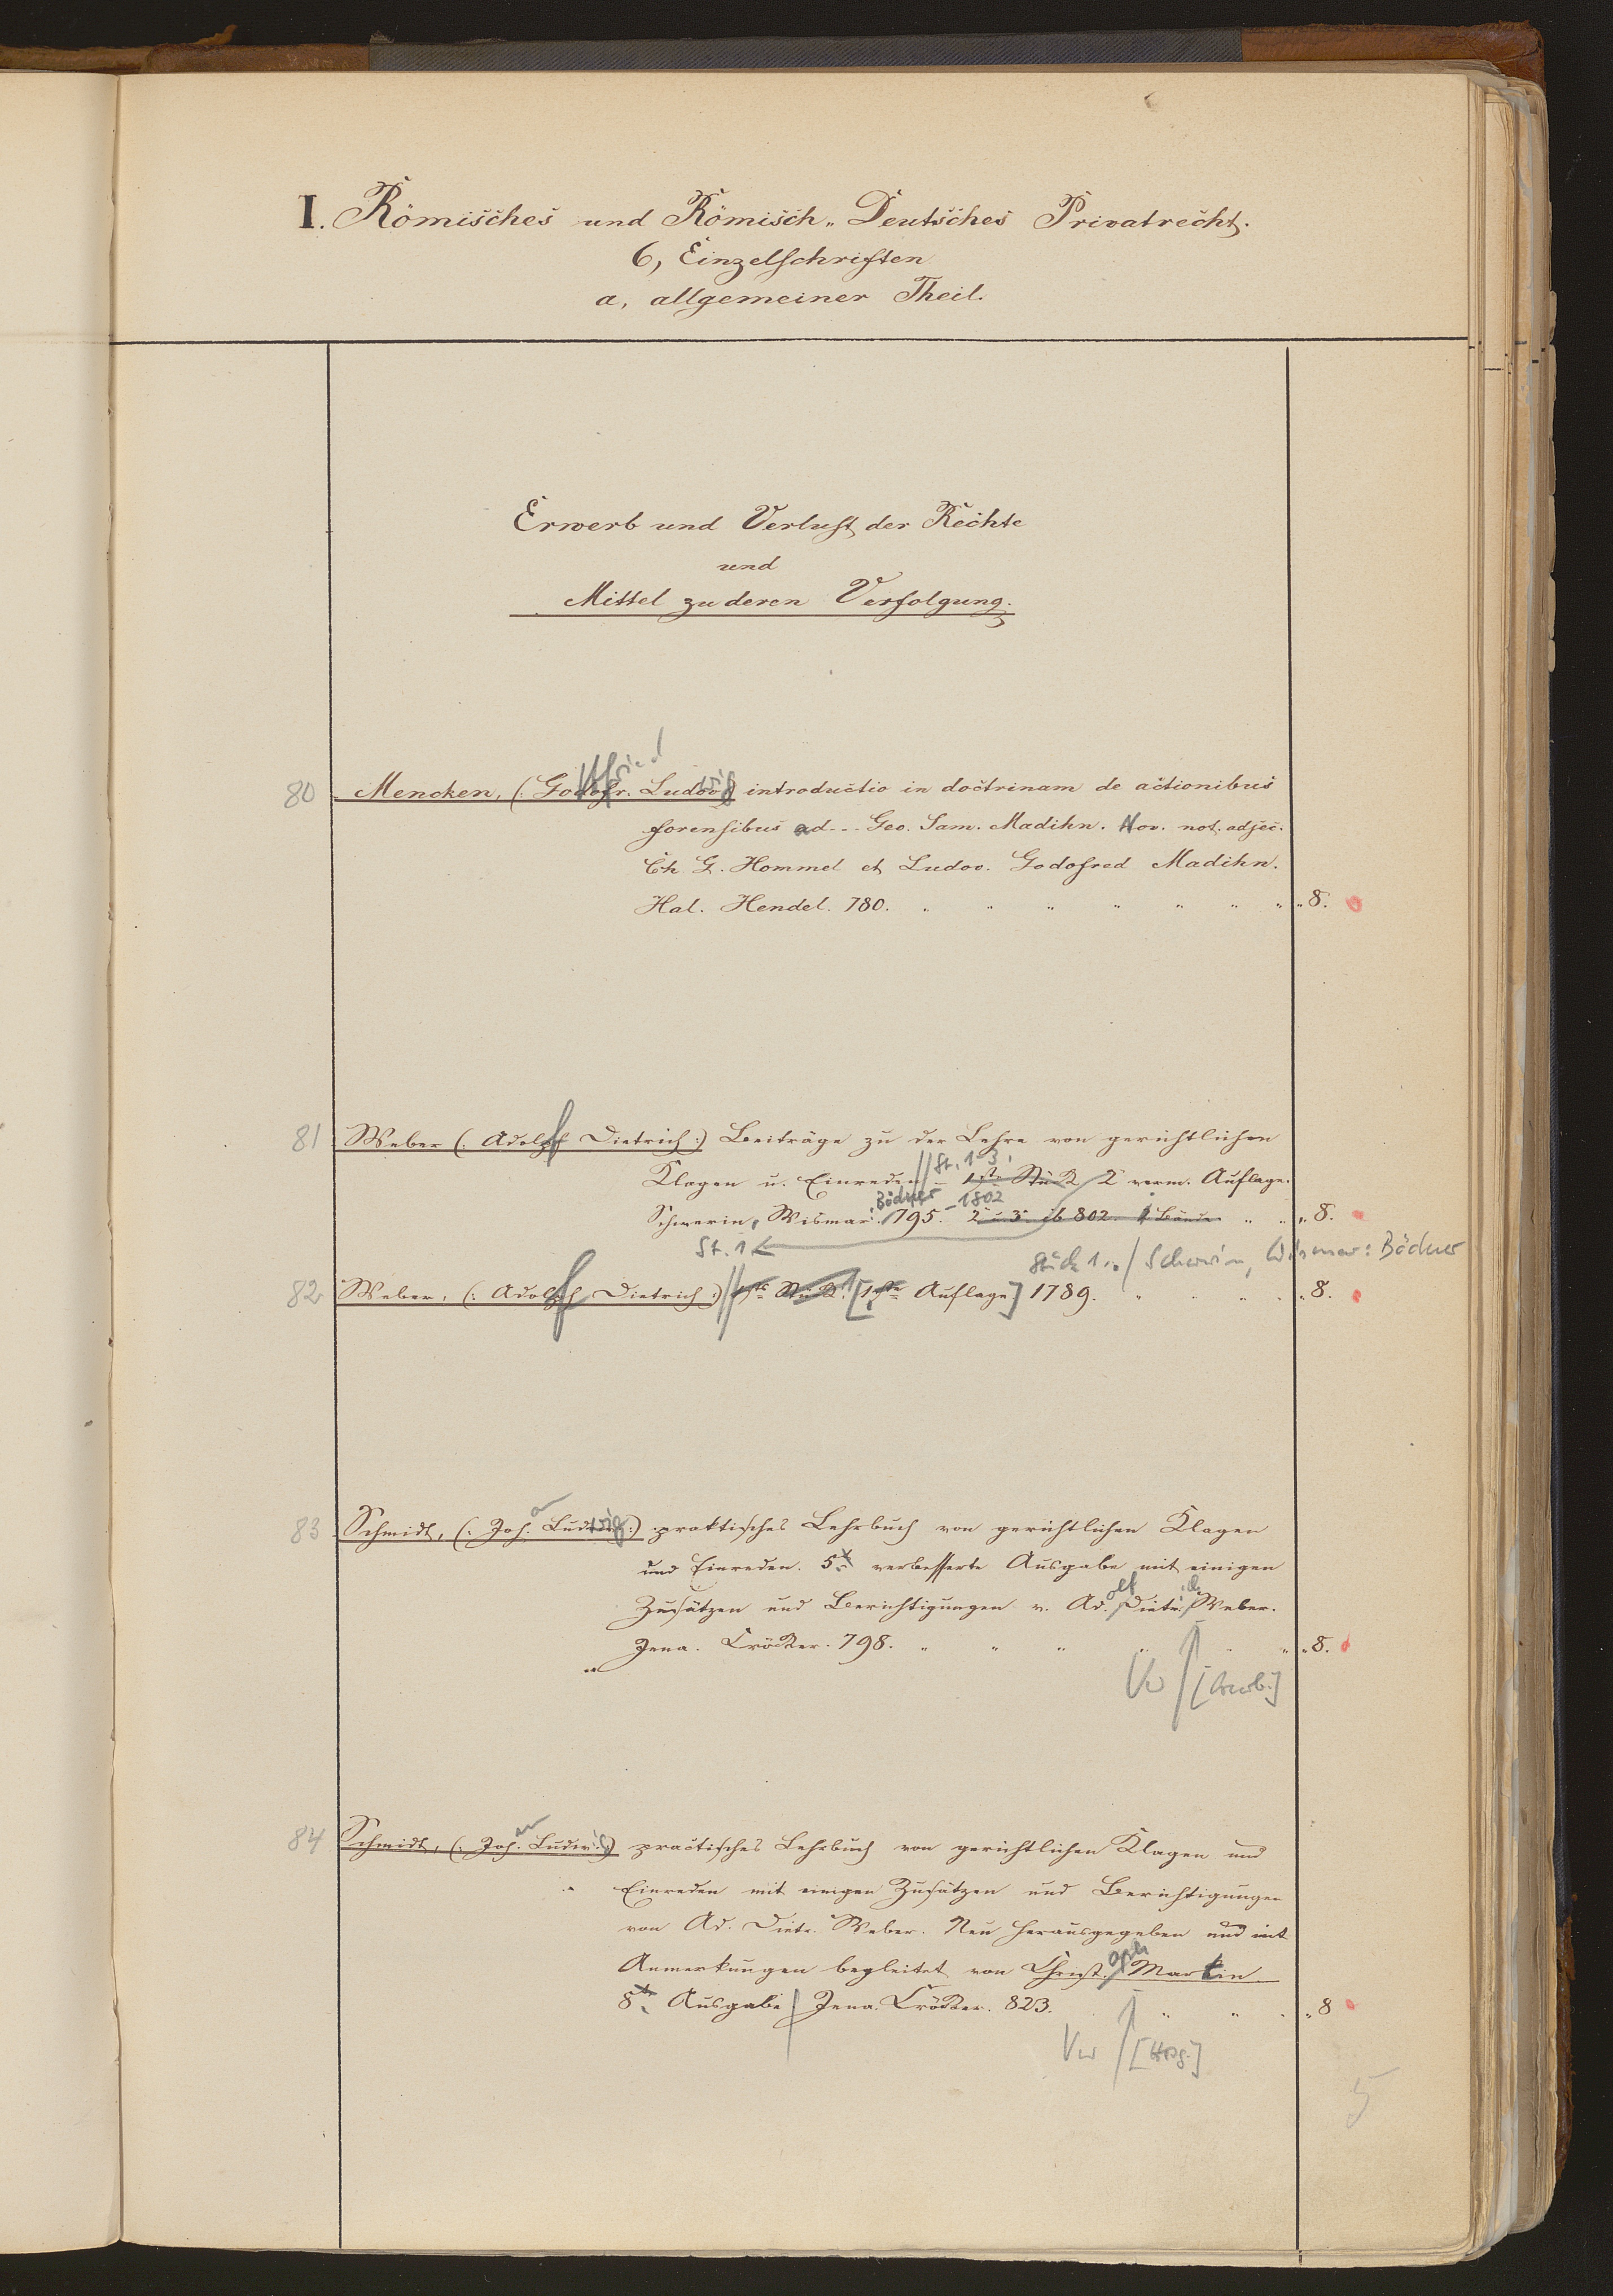 I. Römisches und Römisch-Deutsches Privatrecht.
6, Einzelschriften
a, allgemeiner Theil.
Erwerb und Verlust der Rechte
und
Mittel zu deren Verfolgung.
80 Mencken, (: Godofr. Ludov:) introductio in doctrinam de actionibus
forensibus ad --- Geo. Sam. Madihn. Nov. not. adjec.
Ch. G. Hommel et Ludov. Godofred Madihn.
Hal. Hendel. 780. " " " " " " " 8.
St. 1-3.
81 Weber (: Adolph Dietrich :) Beiträge zu der Lehre von gerichtlichen
Klagen u. Einreden - 1stes Stück 2 verm. Auflage.
Bödner - 1802
Schwerin, Wismar. 795. 2 u. 3. ib 802. Bände " " " 8.
St. 1
Stück 1. / Schwerin, Wismar: Bödner
82 Weber, (: Adolph Dietrich :) 1stes Stück. [1ste Auflage] 1789. " " " " 8.
83 Schmidt, (: Joh. Ludwig :) praktisches Lehrbuch von gerichtlichen Klagen
und Einreden. 5te verbesserte Ausgabe mit einigen
Zusätzen und Berichtigungen v. Ad. Dietr. Weber.
Jena. Cröcker. 798. " " " " " " 8.
Vw [Bearb.]
84 Schmidt, (: Joh. Ludwig :) practisches Lehrbuch von gerichtlichen Klagen und
Einreden mit einigen Zusätzen und Berichtigungen
von Ad. Dietr. Weber. Neu herausgegeben und mit
Anmerkungen begleitet von Christoph Martin.
8te Ausgabe Jena. Cröcker. 823. " " " 8
Vw [Hrsg.]
5